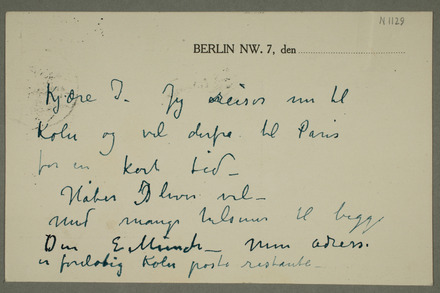 N 1129
BERLIN NW. 7, den
Kjære I. Jeg reiser nu til
Köln og vel derfra til Paris
for en kort tid –
Håber I lever vel –
med mange hilsener til begge
Din E. Munch – min adress.
er foreløbig Köln poste restante –